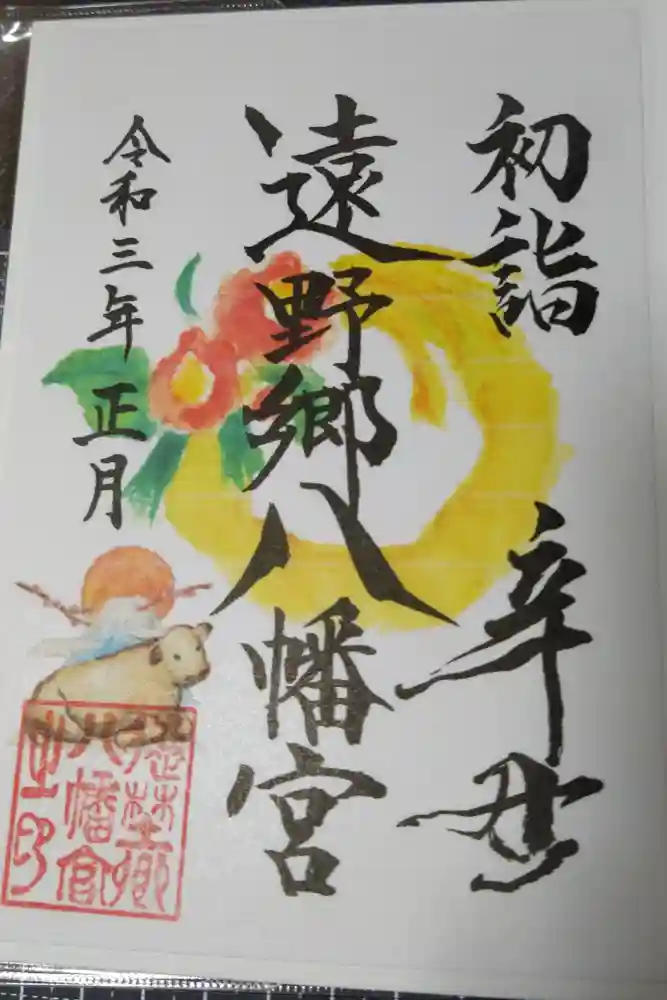 初詣 辛丑
遠野郷八幡宮
令和三年 正月
遠埜郷
八幡宮
之印